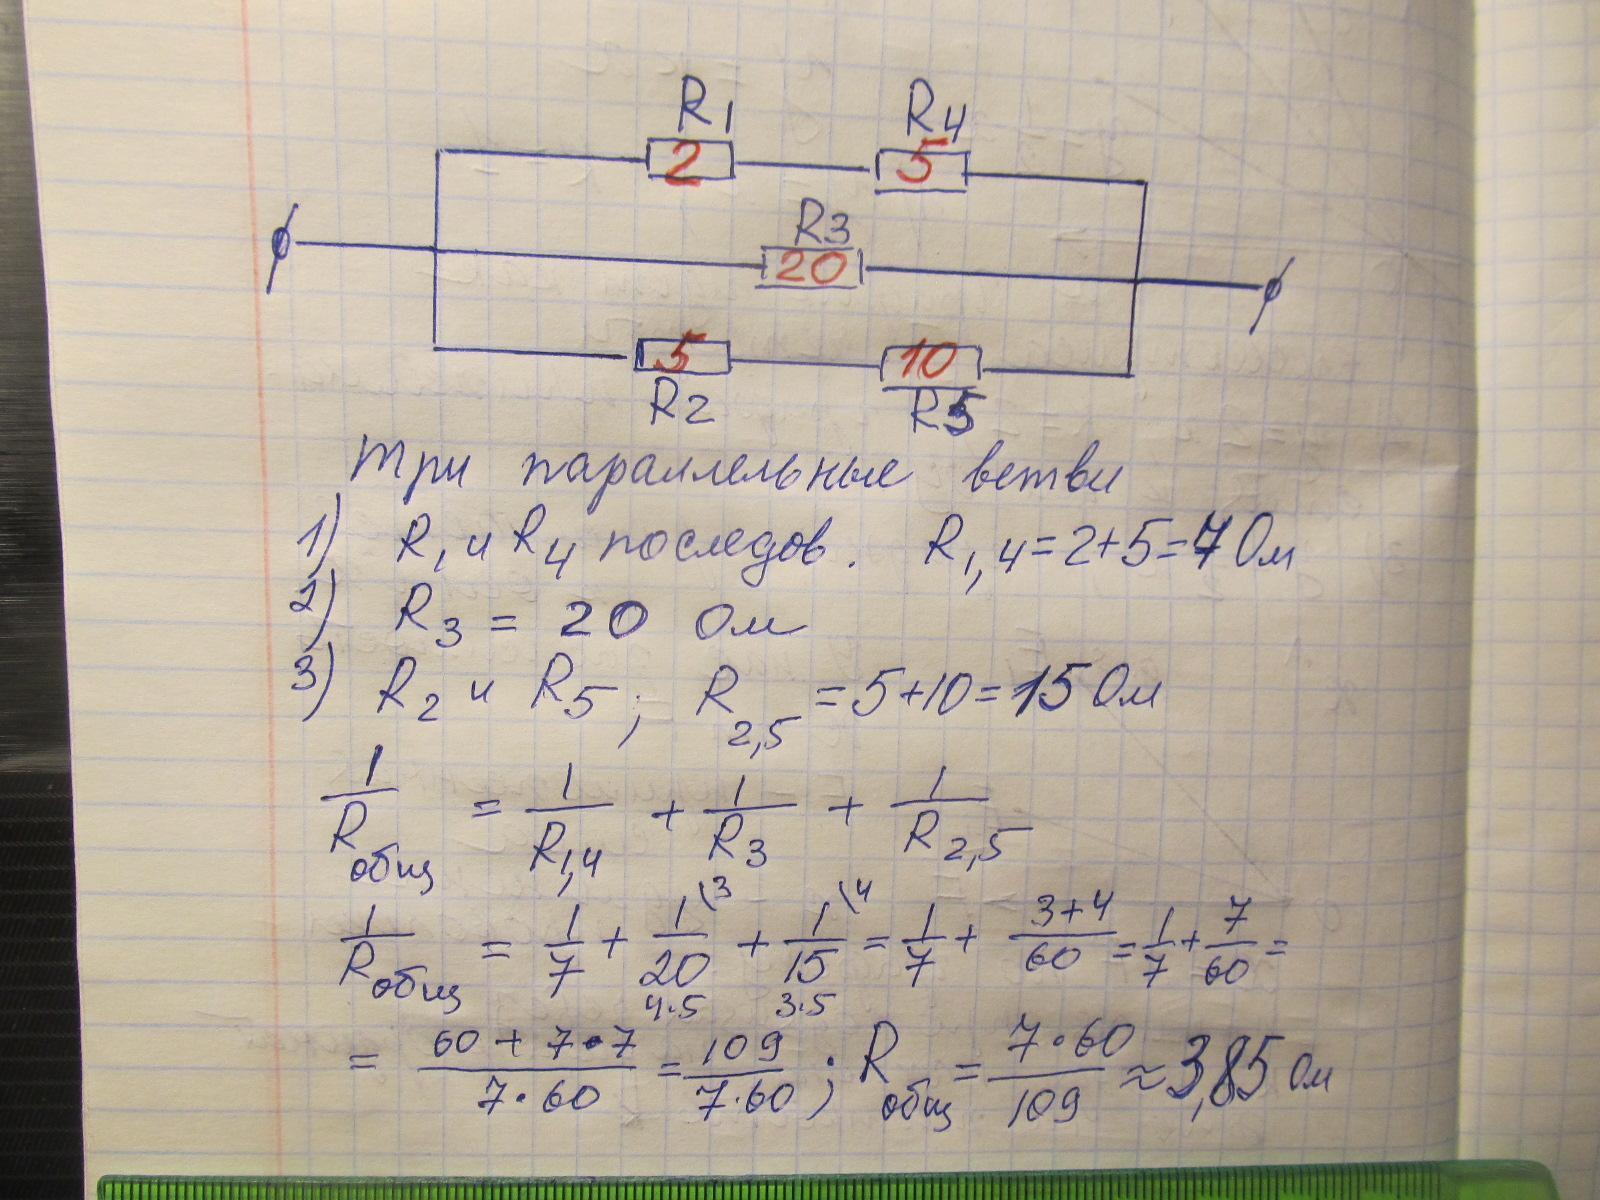 R1 R4
2 5
R3
20
5 10
R2 R5
три параллельные ветви
1) R1 и R4 последов. R1,4 = 2+5 = 7 Ом
2) R3 = 20 Ом
3) R2 и R5 ; R2,5 = 5+10 = 15 Ом
1/Rобщ = 1/R1,4 + 1/R3 + 1/R2,5
1/Rобщ = 1/7 + 1\3/20 + 1\4/15 = 1/7 + 3+4/60 = 1/7 + 7/60 =
4·5 3·5
= 60 + 7·7/7·60 = 109/7·60 ; Rобщ = 7·60/109 ≈ 3,85 Ом